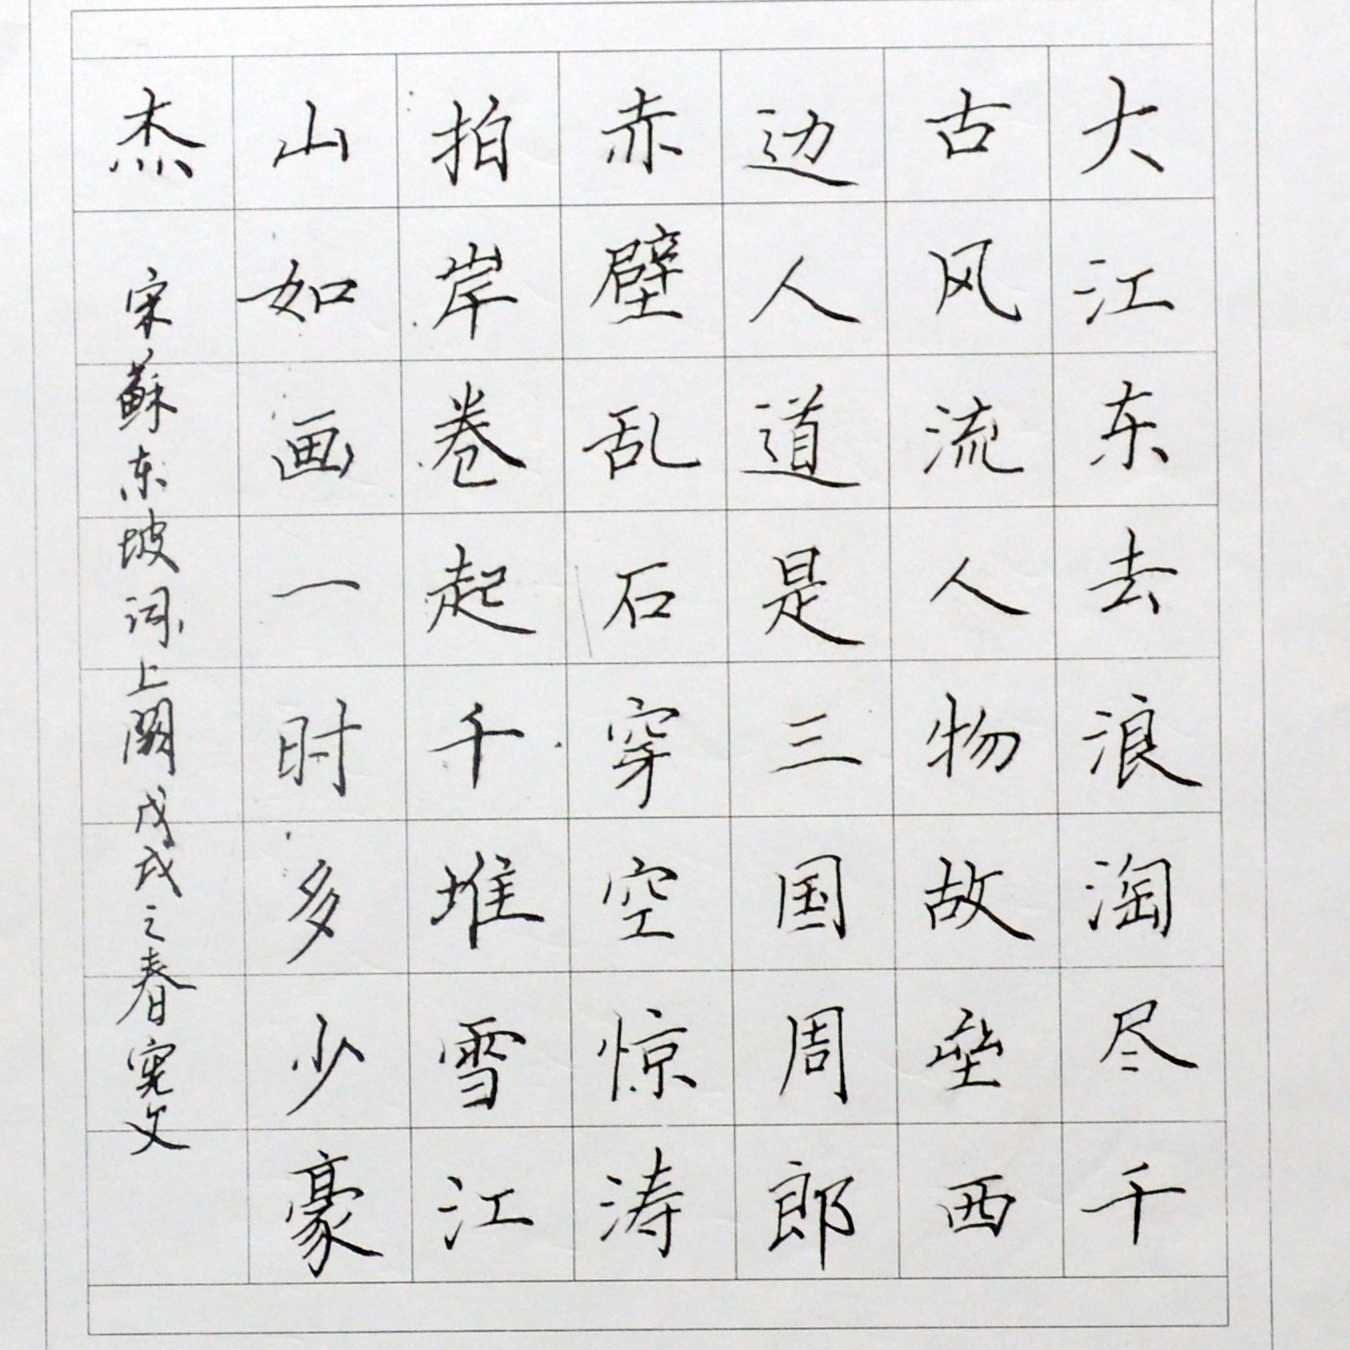 大江东去浪淘尽千
古风流人物故垒西
边人道是三国周郎
赤壁乱石穿空惊涛
拍岸卷起千堆雪江
山如画一时多少豪
杰
宋蘇东坡词上阕戊戌之春宪文